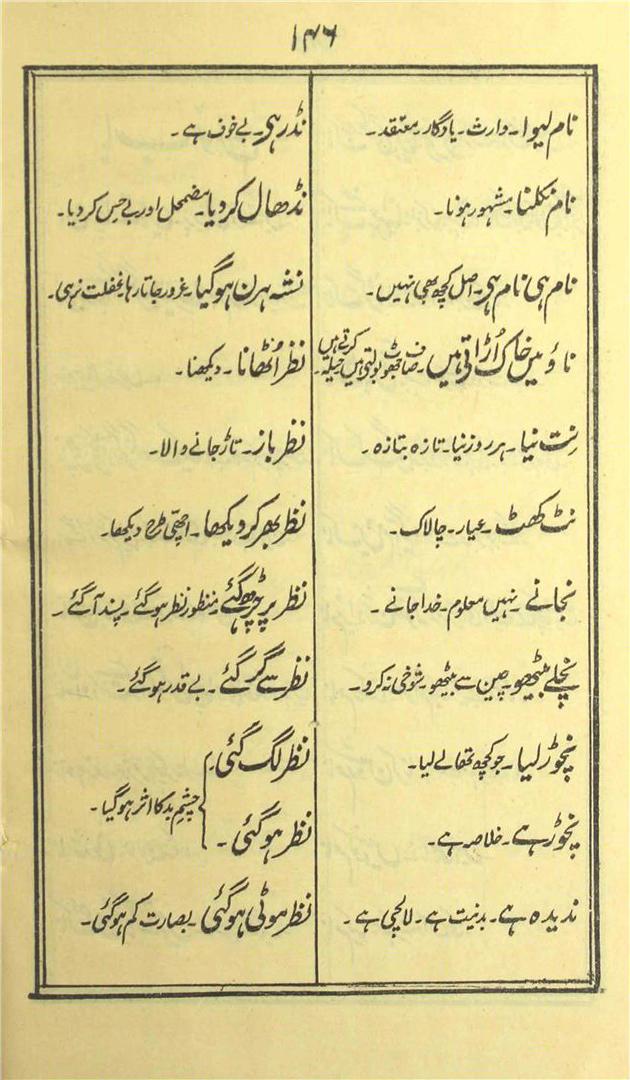 ۱۴۶
نام لیوا۔ وارث۔ یادگار۔ معتقد۔
نام نکلنا۔ مشہور ہونا۔
نام ہی نام ہی۔ اصل کچھ بھی نہیں۔
ناؤ میں خاک اُڑاتی ہیں۔ صاف جھوٹ بولتی ہیں حیلہ کرتے ہیں۔
نِت نیا۔ ہر روز نیا۔ تازہ بتازہ۔
نٹ کھٹ۔ عیار۔ چالاک۔
نجانے۔ نہیں معلوم۔ خدا جانے۔
نچلے بیٹھو۔ چین سے بیٹھو۔ شوخی نہ کرو۔
نچوڑ لیا۔ جو کچھ تھا لے لیا۔
نچوڑ ہے۔ خلاصہ ہے۔
ندیدہ ہے۔ بدنیت ہے۔ لالچی ہے۔
نڈر ہی۔ بے خوف ہے۔
نڈھال کر دیا۔ مضمحل اور بے حِس کر دیا۔
نشہ ہرن ہوگیا۔ غرور جاتا رہا۔ غفلت نرہی۔
نظر اُٹھانا۔ دیکھنا۔
نظر باز۔ تاڑ جانے والا۔
نظر بھر کر دیکھا۔ اچھی طرح دیکھا۔
نظر پر چڑھ گئے۔ منظور نظر ہو گئے۔ پسند آ گئے۔
نظر سے گر گئے۔ بے قدر ہو گئے۔
نظر لگ گئی۔
نظر ہو گئی۔ } چشم بد کا اثر ہو گیا۔
نظر موٹی ہو گئی۔ بصارت کم ہو گئی۔